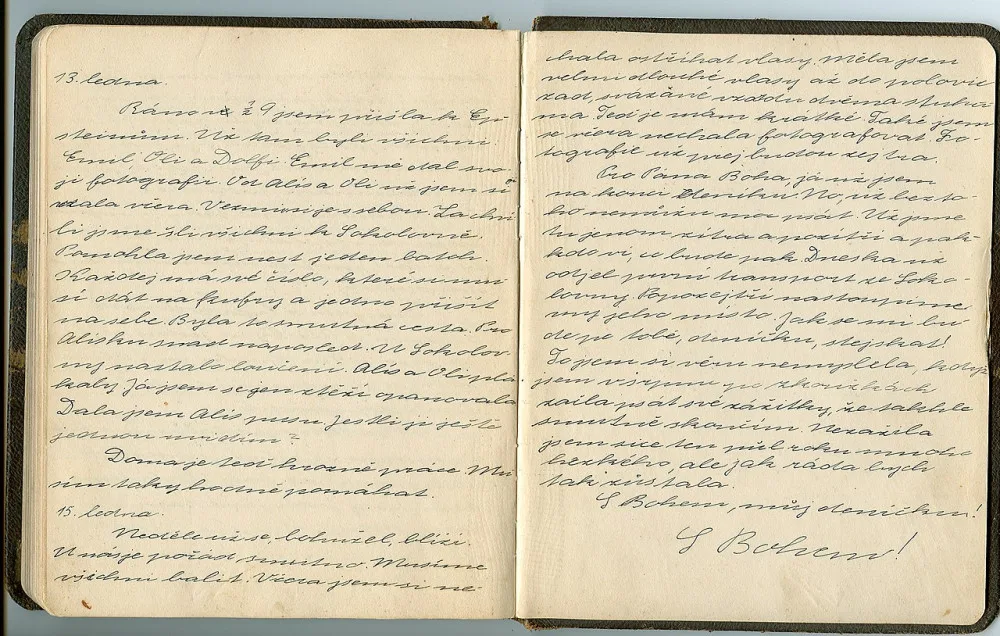 13. ledna.
Ráno v ½ 9 jsem přišla k Ep-
steinům. Už tam byli všichni.
Emil, Oli a Dolfi. Emil mě dal svo-
ji fotografii. Od Alis a Oli už jsem si
vzala včera. Vezmu si je s sebou. Za chví-
li jsme šli všichni k Sokolovně.
Pomohla jsem nést jeden batoh.
Každej má své číslo, které si mu-
sí dát na kufry a jedno přišít
na sebe. Byla to smutná cesta. Pro
Alisku snad naposled. U Sokolov-
ny nastalo loučení. Alis a Oli pla-
kaly. Já jsem se jen ztěží opanovala.
Dala jsem Alis pusu. Jestli ji ještě
jednou uvidím?
Doma je teď hrozné práce. Mu-
sím taky hodně pomáhat.
15. ledna.
Neděle už se, bohužel, blíží.
U nás je pořád smutno. Musíme
všichni balit. Včera jsem si ne-
chala ostříhat vlasy. Měla jsem
velmi dlouhé vlasy až do polovic
zad, svázané vzadu dvěma stuha-
ma. Teď je mám krátké. Také jsem
se včera nechala fotografovat. Fo-
tografie už prej budou zejtra.
Pro Pána Boha, já už jsem
na konci deníku. No, už bez to-
ho nemůžu moc psát. Už jsme
tu jenom zítra a pozítří a pak -
kdo ví, co bude pak. Dneska už
odjel první transport ze Soko-
lovny. Popozejtří nastoupíme
my jeho místo. Jak se mi bu-
de po tobě, deníčku, stejskat!
To jsem si věru nemyslela, když
jsem v srpnu po zkouškách
začla psát své zážitky, že takhle
smutně skončím. Nezažila
jsem sice ten půl roku mnoho
hezkého, ale jak ráda bych
tak zůstala.
S Bohem, můj deníčku!
S Bohem!